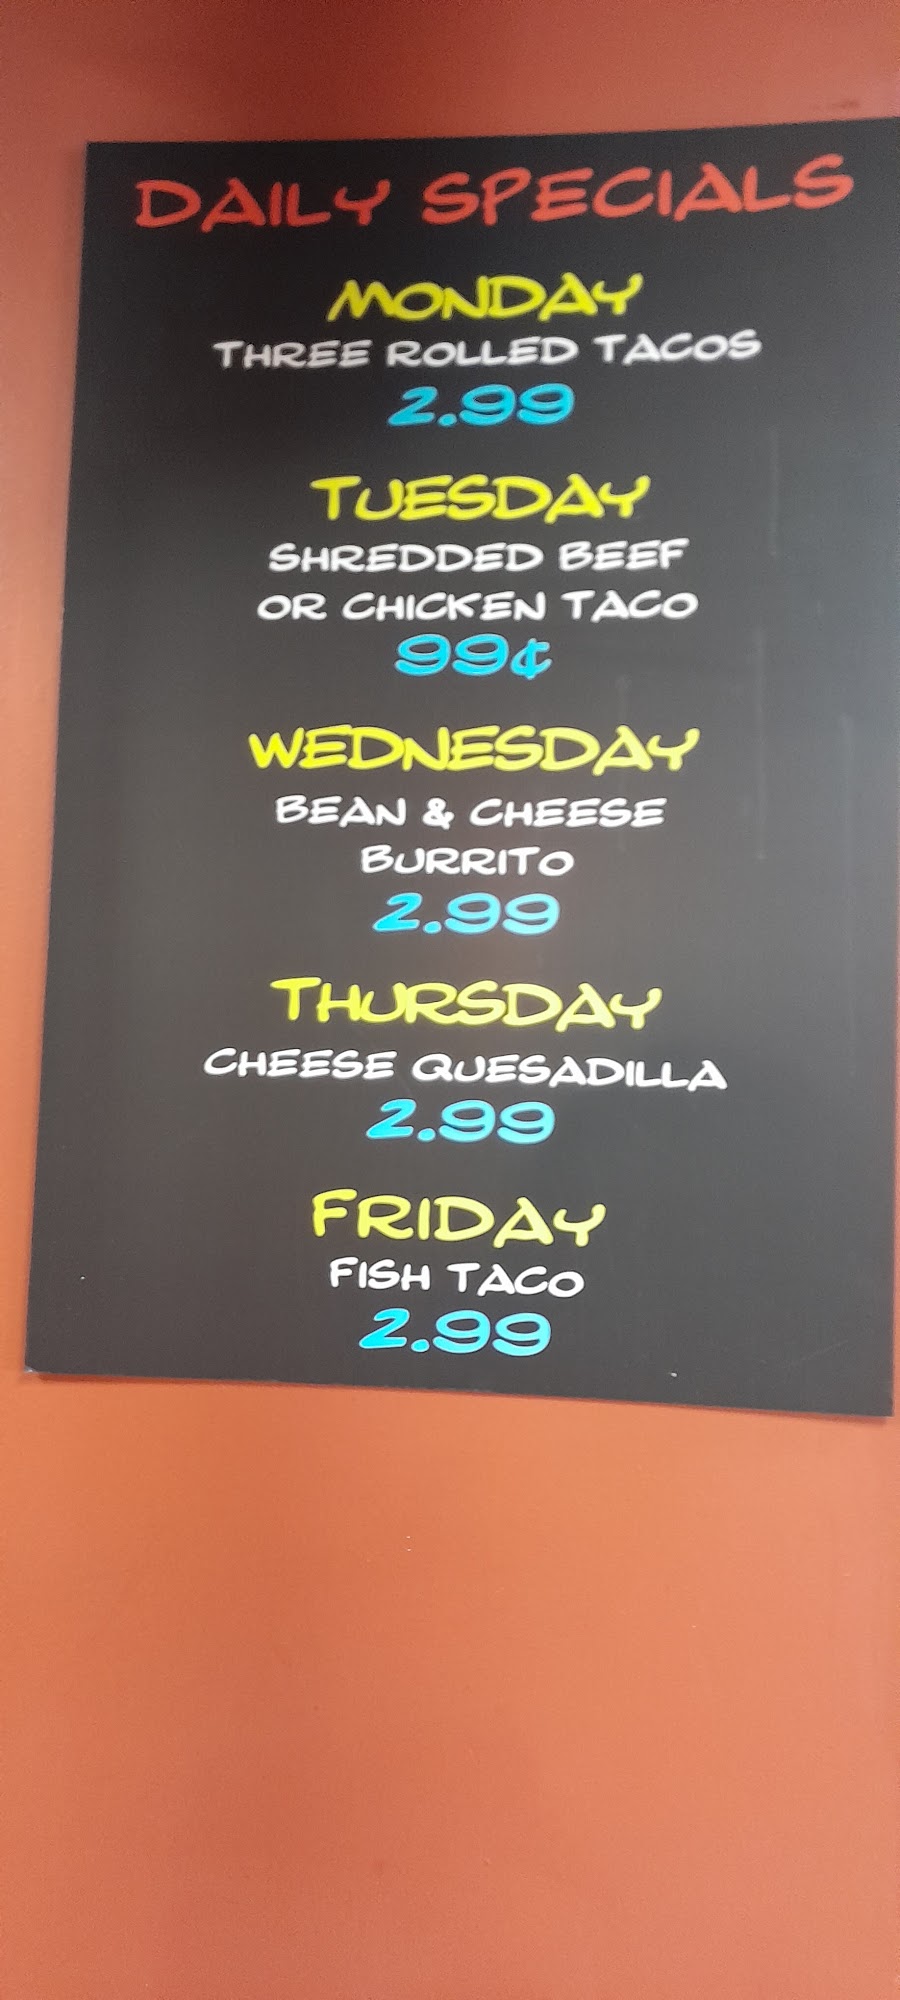 DAILY SPECIALS
MONDAY
THREE ROLLED TACOS
2.99
TUESDAY
SHREDDED BEEF
OR CHICKEN TACO
99¢
WEDNESDAY
BEAN & CHEESE
BURRITO
2.99
THURSDAY
CHEESE QUESADILLA
2.99
FRIDAY
FISH TACO
2.99